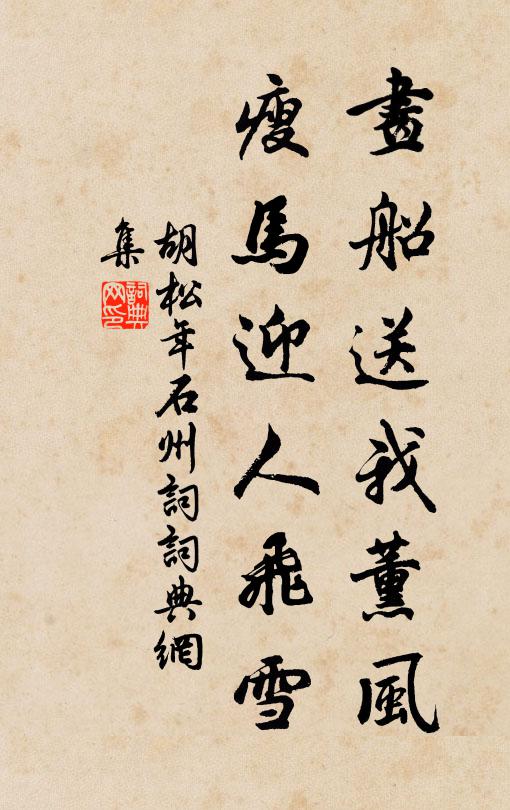 畫船送我薰風
瘦馬迎人飛雪
胡松年石州詞詞典網
集
詞典
网印